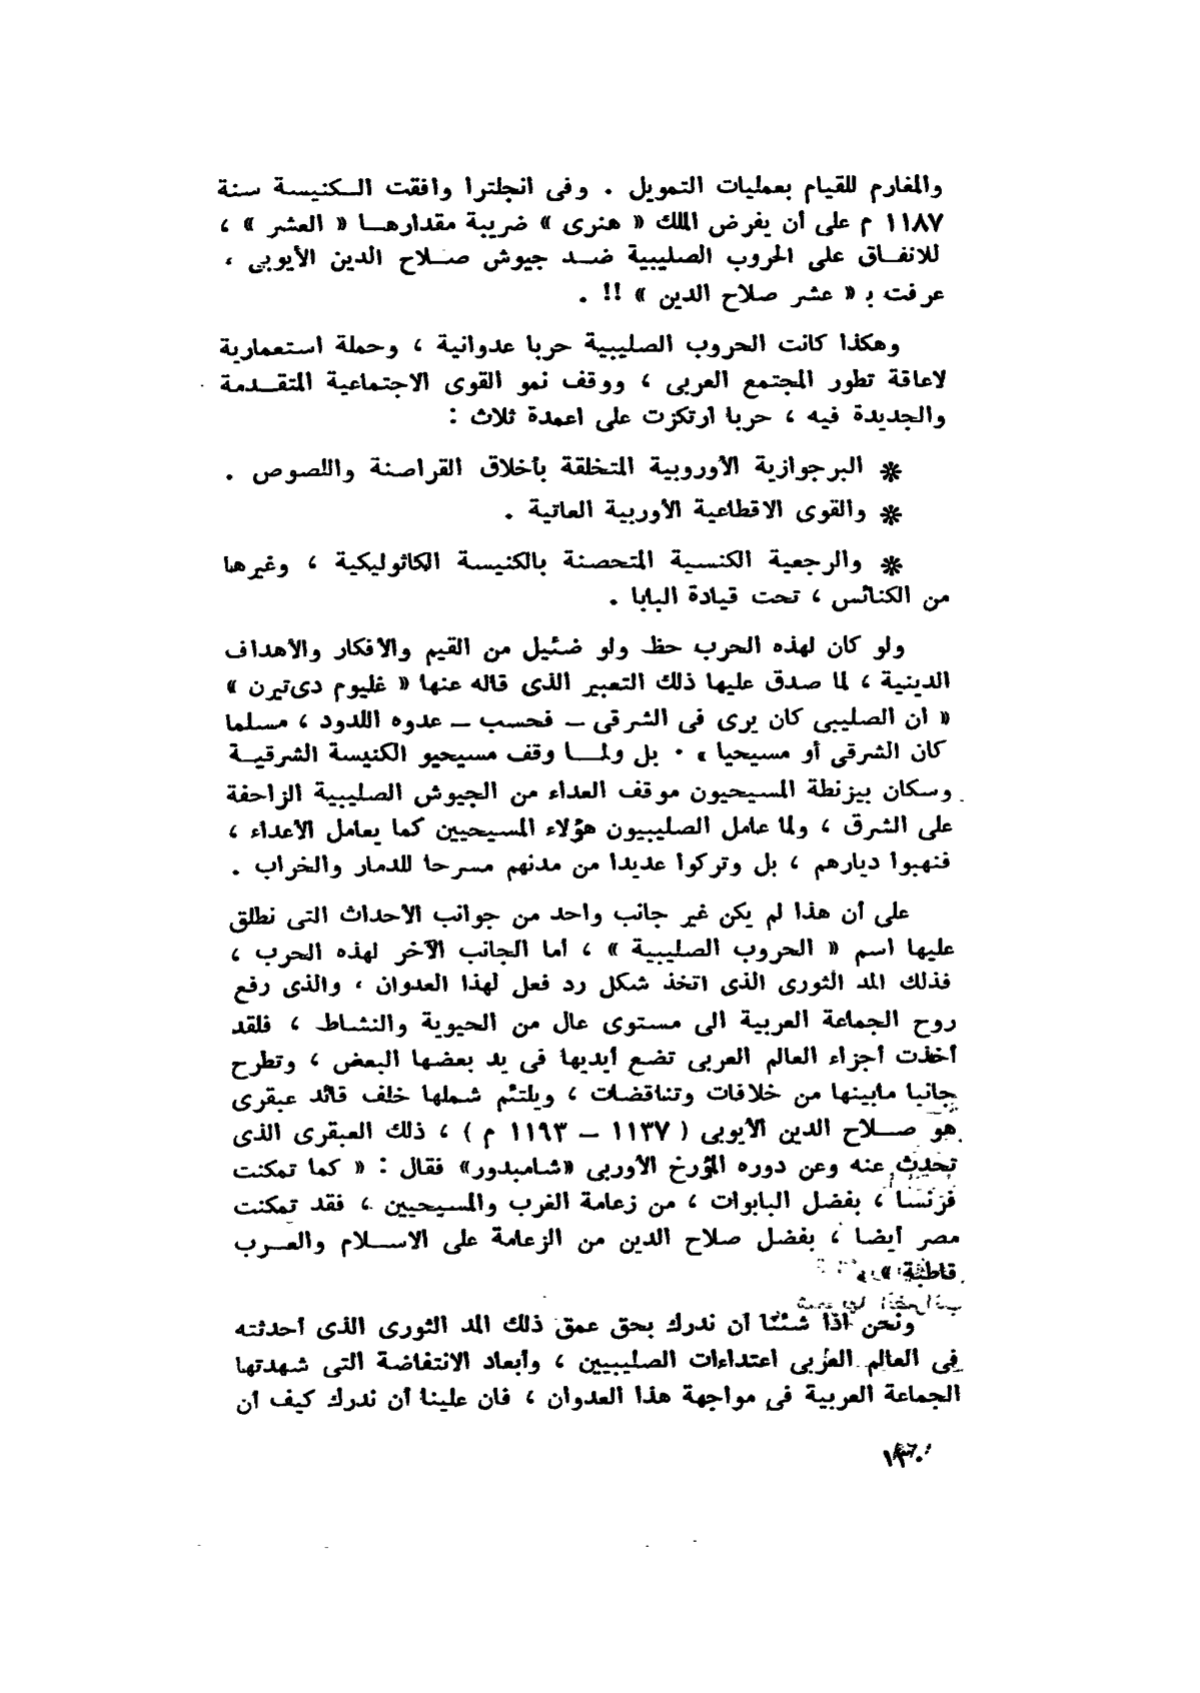 والمغارم للقيام بعمليات التمويل . وفى انجلترا وافقت الـكنيسة سنة
١١٨٧ م على أن يفرض الملك « هنرى » ضريبة مقدارهـا « العشر » ،
للانفـاق على الحروب الصليبية ضـد جيوش صـلاح الدين الأيوبى ،
عرفت بـ « عشر صلاح الدين » !! .
وهكذا كانت الحروب الصليبية حربا عدوانية ، وحملة استعمارية
لاعاقة تطور المجتمع العربى ، ووقف نمو القوى الاجتماعية المتقـدمة
والجديدة فيه ، حربا ارتكزت على اعمدة ثلاث :
❋ البرجوازية الأوروبية المتخلقة بأخلاق القراصنة واللصوص .
❋ والقوى الاقطاعية الأوربية العاتية .
❋ والرجعية الكنسية المتحصنة بالكنيسة الكاثوليكية ، وغيرها
من الكنائس ، تحت قيادة البابا .
ولو كان لهذه الحرب حظ ولو ضئيل من القيم والافكار والأهداف
الدينية ، لما صدق عليها ذلك التعبير الذى قاله عنها « غليوم دى‌تيرن »
« ان الصليبى كان يرى فى الشرقى – فحسب – عدوه اللدود ، مسلما
كان الشرقى أو مسيحيا » . بل ولمـا وقف مسيحيو الكنيسة الشرقيـة
وسكان بيزنطة المسيحيون موقف العداء من الجيوش الصليبية الزاحفة
على الشرق ، ولما عامل الصليبيون هؤلاء المسيحيين كما يعامل الأعداء ،
فنهبوا ديارهم ، بل وتركوا عديدا من مدنهم مسرحا للدمار والخراب .
على أن هذا لم يكن غير جانب واحد من جوانب الأحداث التى نطلق
عليها اسم « الحروب الصليبية » ، أما الجانب الآخر لهذه الحرب ،
فذلك المد الثورى الذى اتخذ شكل رد فعل لهذا العدوان ، والذى رفع
روح الجماعة العربية الى مستوى عال من الحيوية والنشاط ، فلقد
أخذت أجزاء العالم العربى تضع أيديها فى يد بعضها البعض ، وتطرح
جانبا مابينها من خلافات وتناقضات ، ويلتئم شملها خلف قائد عبقرى
هو صـلاح الدين الأيوبى ( ١١٣٧ – ١١٩٣ م ) ، ذلك العبقرى الذى
تحدث عنه وعن دوره المؤرخ الأوربى «شامبدور» فقال : « كما تمكنت
فرنسا ، بفضل البابوات ، من زعامة الغرب والمسيحيين ، فقد تمكنت
مصر أيضا ، بفضل صلاح الدين من الزعامة على الاسـلام والعـرب
قاطبة » .
ونحن اذا شئنا أن ندرك بحق عمق ذلك المد الثورى الذى أحدثته
فى العالم العربى اعتداءات الصليبيين ، وأبعاد الانتفاضة التى شهدتها
الجماعة العربية فى مواجهة هذا العدوان ، فان علينا أن ندرك كيف أن